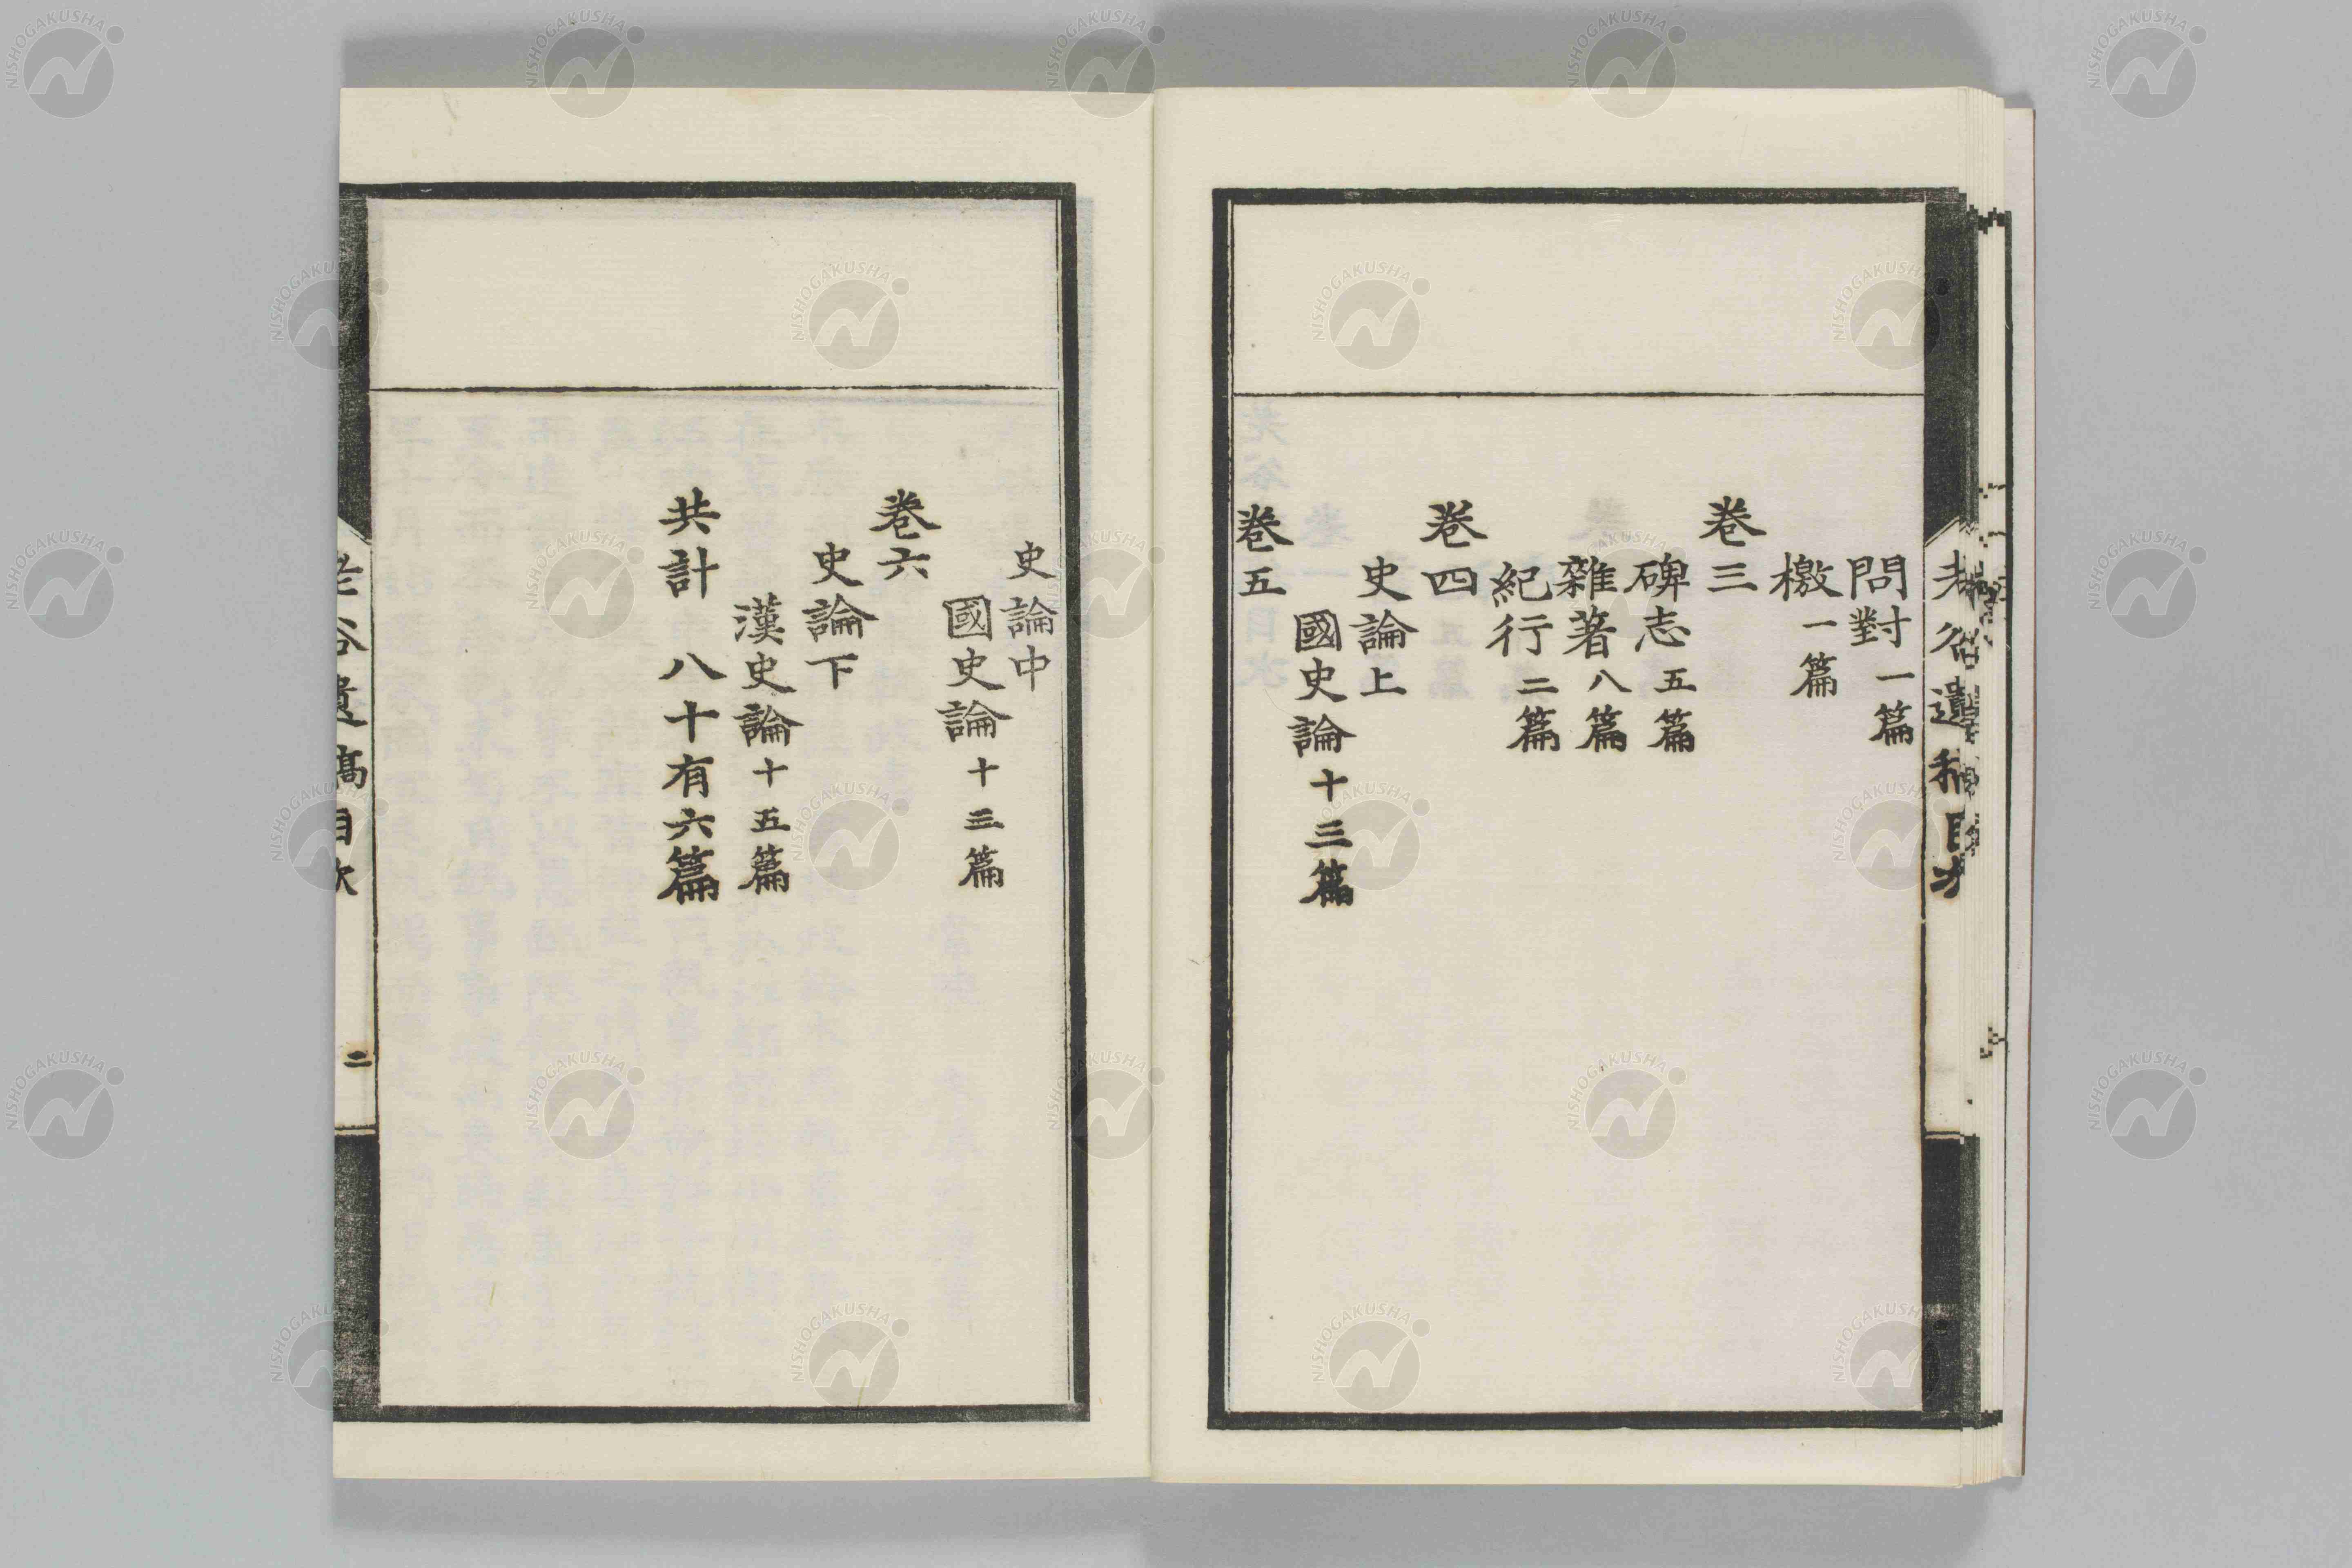 問對一篇
檄一篇
卷三
碑志五篇
雜著八篇
紀行二篇
卷四
史論上
國史論十三篇
卷五
史論中
國史論十三篇
卷六
史論下
漢史論十五篇
共計八十有六篇
老谷遺稿目次
二
NISHOGAKUSHA